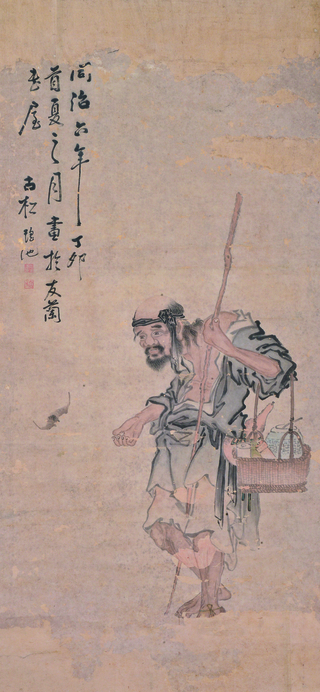 同治六年丁卯
首夏之月畫於友蘭
書屋 古松 池